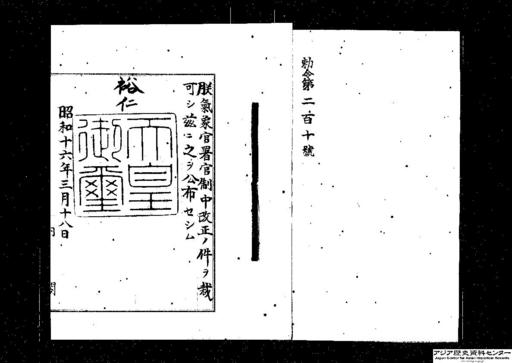 勅令第二百十號
朕氣象官署官制中改正ノ件ヲ裁
可シ茲ニ之ヲ公布セシム
裕仁
天皇御璽
昭和十六年三月十八日
内
閣
アジア歴史資料センター
Japan Center for Asian Historical Records